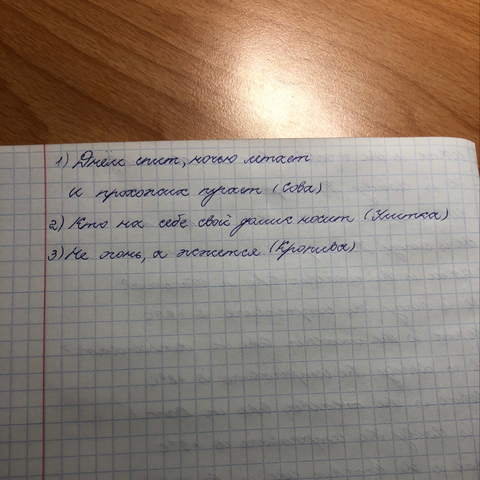 1) Днём спит, ночью летает
и прохожих пугает (Сова)
2) Кто на себе свой домик носит (Улитка)
3) Не огонь, а жжется (Крапива)